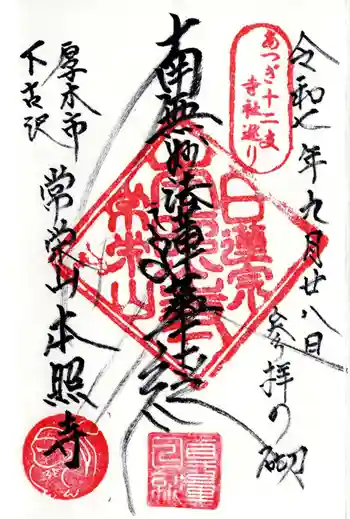 令和七年九月廿八日
参拝の砌
あつぎ十二支
寺社巡り
南無妙法蓮華経
日蓮宗
厚木市
下古沢
常栄山本照寺